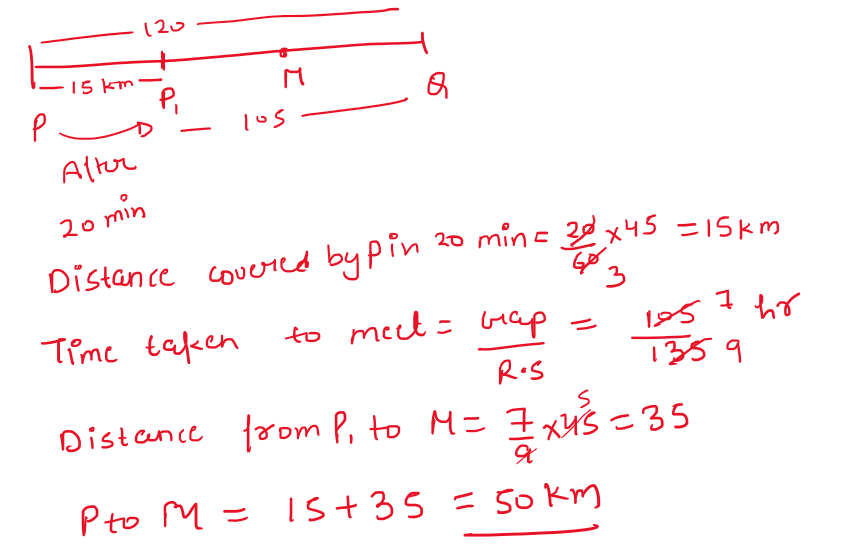 120
15 km
P₁ M Q
P 105
After
20 min
Distance covered by P in 20 min = 20/60 3 x 45 = 15 km
Time taken to meet = Gap/R.S = 105 7/135 9 hr
Distance from P₁ to M = 7/9 x 45 5 = 35
P to M = 15 + 35 = 50 km